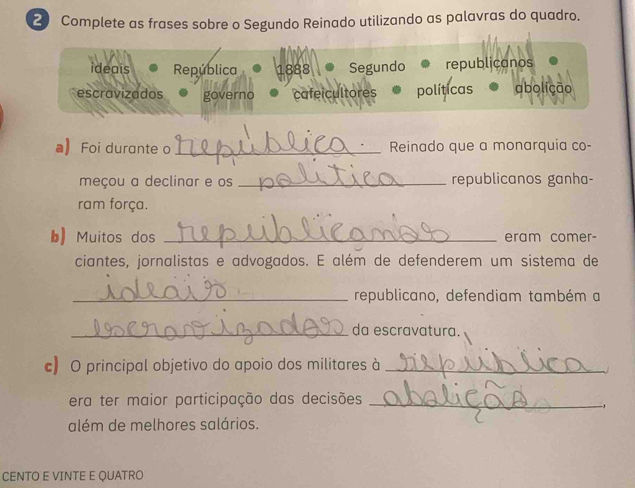 2 Complete as frases sobre o Segundo Reinado utilizando as palavras do quadro.
ideais • República • 1888 • Segundo • republicanos •
escravizados • governo • cafeicultores • políticas • abolição
a) Foi durante o república. Reinado que a monarquia co-
meçou a declinar e os politica republicanos ganha-
ram força.
b) Muitos dos republicanos eram comer-
ciantes, jornalistas e advogados. E além de defenderem um sistema de
ideais republicano, defendiam também a
escravizados da escravatura.
c) O principal objetivo do apoio dos militares à república
era ter maior participação das decisões abolição,
além de melhores salários.
CENTO E VINTE E QUATRO